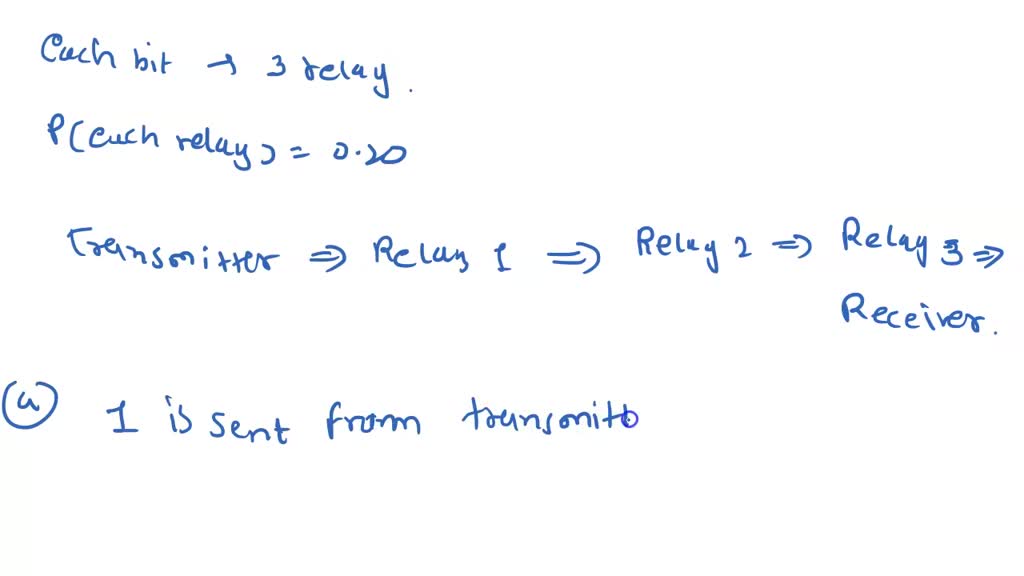 Each bit → 3 relay.
P(each relay) = 0.20
Transmitter ⇒ Relay 1 ⇒ Relay 2 ⇒ Relay 3 ⇒
Receiver.
(a) 1 is sent from transmitt